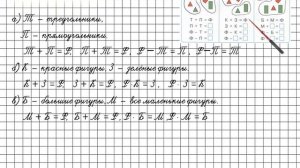 а) Т - треугольники.
П - прямоугольники.
Т + П = Ф, П + Т = Ф, Ф - Т = П, Ф - П = Т
б) К - красные фигуры, З - зелёные фигуры.
К + З = Ф, З + К = Ф, Ф - К = З, Ф - З = К
в) Б - большие фигуры, М - все маленькие фигуры.
М + Б = Ф, Б + М = Ф, Ф - Б = М, Ф - М = Б
Т + П = Ф
К + З = Ф
Б + М = Ф